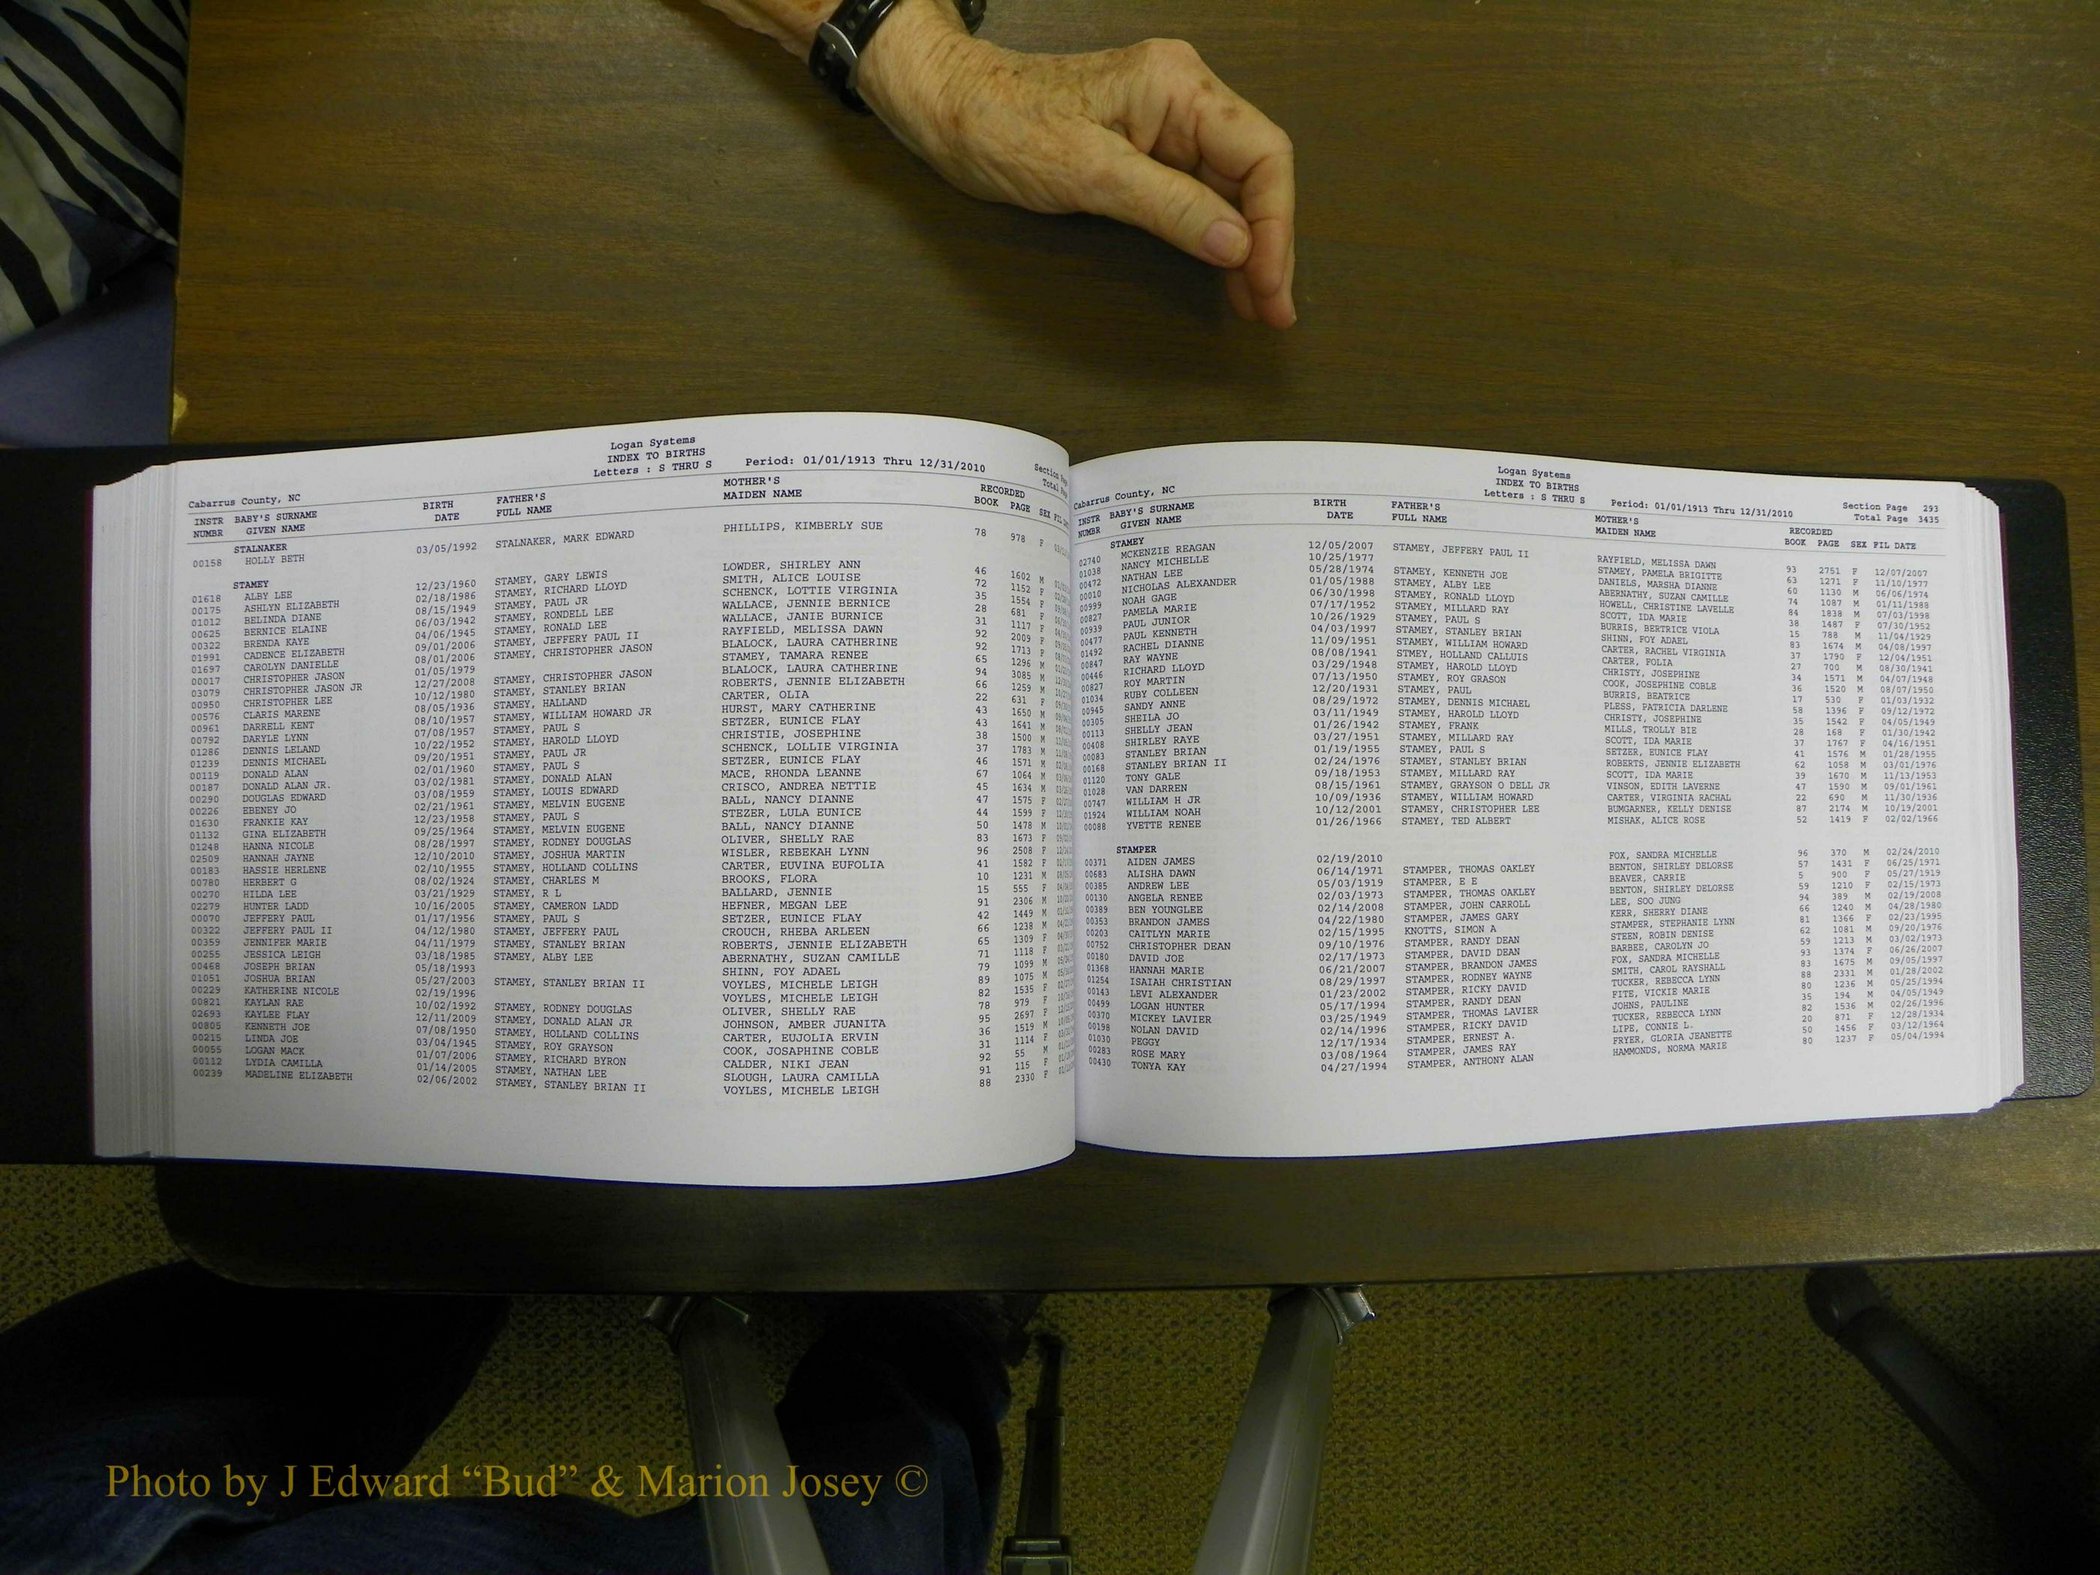 Logan Systems
INDEX TO BIRTHS
Letters : S THRU S Period: 01/01/1913 Thru 12/31/2010
Cabarrus County, NC
INSTR BABY'S SURNAME BIRTH FATHER'S MOTHER'S RECORDED
NUMBR GIVEN NAME DATE FULL NAME MAIDEN NAME BOOK PAGE SEX FIL
STALNAKER
00158 HOLLY BETH 03/05/1992 STALNAKER, MARK EDWARD PHILLIPS, KIMBERLY SUE 78 978 F
STAMEY
01618 ALBY LEE 12/23/1960 STAMEY, GARY LEWIS LOWDER, SHIRLEY ANN 46 1602 M
00175 ASHLYN ELIZABETH 02/18/1986 STAMEY, RICHARD LLOYD SMITH, ALICE LOUISE 72 1152 F
01012 BELINDA DIANE 08/15/1949 STAMEY, PAUL JR SCHENCK, LOTTIE VIRGINIA 35 1554 F
00625 BERNICE ELAINE 06/03/1942 STAMEY, RONDELL LEE WALLACE, JENNIE BERNICE 28 681 F
00322 BRENDA KAYE 04/06/1945 STAMEY, RONALD LEE WALLACE, JANIE BURNICE 31 1117 F
01991 CADENCE ELIZABETH 09/01/2006 STAMEY, JEFFERY PAUL II RAYFIELD, MELISSA DAWN 92 2009 F
01697 CAROLYN DANIELLE 08/01/2006 STAMEY, CHRISTOPHER JASON BLALOCK, LAURA CATHERINE 92 1713 F
00017 CHRISTOPHER JASON 01/05/1979 STAMEY, TAMARA RENEE 65 1296 M
03079 CHRISTOPHER JASON JR 12/27/2008 STAMEY, CHRISTOPHER JASON BLALOCK, LAURA CATHERINE 94 3085 M
00950 CHRISTOPHER LEE 10/12/1980 STAMEY, STANLEY BRIAN ROBERTS, JENNIE ELIZABETH 66 1259 M
00576 CLARIS MARENE 08/05/1936 STAMEY, HALLAND CARTER, OLIA 22 631 F
00961 DARRELL KENT 08/10/1957 STAMEY, WILLIAM HOWARD JR HURST, MARY CATHERINE 43 1650 M
00792 DARYLE LYNN 07/08/1957 STAMEY, PAUL S SETZER, EUNICE FLAY 43 1641 M
01286 DENNIS LELAND 10/22/1952 STAMEY, HAROLD LLOYD CHRISTIE, JOSEPHINE 38 1500 M
01239 DENNIS MICHAEL 09/20/1951 STAMEY, PAUL JR SCHENCK, LOLLIE VIRGINIA 37 1783 M
00119 DONALD ALAN 02/01/1960 STAMEY, PAUL S SETZER, EUNICE FLAY 46 1571 M
00187 DONALD ALAN JR. 03/02/1981 STAMEY, DONALD ALAN MACE, RHONDA LEANNE 67 1064 M
00290 DOUGLAS EDWARD 03/08/1959 STAMEY, LOUIS EDWARD CRISCO, ANDREA NETTIE 45 1634 M
00226 EBENEY JO 02/21/1961 STAMEY, MELVIN EUGENE BALL, NANCY DIANNE 47 1575 F
01630 FRANKIE KAY 12/23/1958 STAMEY, PAUL S STEZER, LULA EUNICE 44 1599 F
01132 GINA ELIZABETH 09/25/1964 STAMEY, MELVIN EUGENE BALL, NANCY DIANNE 50 1478 M
01248 HANNA NICOLE 08/28/1997 STAMEY, RODNEY DOUGLAS OLIVER, SHELLY RAE 83 1673 F
02509 HANNAH JAYNE 12/10/2010 STAMEY, JOSHUA MARTIN WISLER, REBEKAH LYNN 96 2508 F
00183 HASSIE HERLENE 02/10/1955 STAMEY, HOLLAND COLLINS CARTER, EUVINA EUFOLIA 41 1582 F
00780 HERBERT G 08/02/1924 STAMEY, CHARLES M BROOKS, FLORA 10 1231 M
00270 HILDA LEE 03/21/1929 STAMEY, R L BALLARD, JENNIE 15 555 F
02279 HUNTER LADD 10/16/2005 STAMEY, CAMERON LADD HEFNER, MEGAN LEE 91 2306 M
00070 JEFFERY PAUL 01/17/1956 STAMEY, PAUL S SETZER, EUNICE FLAY 42 1449 M
00322 JEFFERY PAUL II 04/12/1980 STAMEY, JEFFERY PAUL CROUCH, RHEBA ARLEEN 66 1238 M
00359 JENNIFER MARIE 04/11/1979 STAMEY, STANLEY BRIAN ROBERTS, JENNIE ELIZABETH 65 1309 F
00255 JESSICA LEIGH 03/18/1985 STAMEY, ALBY LEE ABERNATHY, SUZAN CAMILLE 71 1118 F
00468 JOSEPH BRIAN 05/18/1993 SHINN, FOY ADAEL 79 1099 M
01051 JOSHUA BRIAN 05/27/2003 STAMEY, STANLEY BRIAN II VOYLES, MICHELE LEIGH 89 1075 M
00229 KATHERINE NICOLE 02/19/1996 VOYLES, MICHELE LEIGH 82 1535 F
00821 KAYLAN RAE 10/02/1992 STAMEY, RODNEY DOUGLAS OLIVER, SHELLY RAE 78 979 F
02693 KAYLEE FLAY 12/11/2009 STAMEY, DONALD ALAN JR JOHNSON, AMBER JUANITA 95 2697 F
00805 KENNETH JOE 07/08/1950 STAMEY, HOLLAND COLLINS CARTER, EUJOLIA ERVIN 36 1519 M
00215 LINDA JOE 03/04/1945 STAMEY, ROY GRAYSON COOK, JOSAPHINE COBLE 31 1114 F
00055 LOGAN MACK 01/07/2006 STAMEY, RICHARD BYRON CALDER, NIKI JEAN 92 55 M
00112 LYDIA CAMILLA 01/14/2005 STAMEY, NATHAN LEE SLOUGH, LAURA CAMILLA 91 115 F
00239 MADELINE ELIZABETH 02/06/2002 STAMEY, STANLEY BRIAN II VOYLES, MICHELE LEIGH 88 2330 F
Logan Systems
INDEX TO BIRTHS
Letters : S THRU S Period: 01/01/1913 Thru 12/31/2010
Cabarrus County, NC
Section Page 293
Total Page 3435
INSTR BABY'S SURNAME BIRTH FATHER'S MOTHER'S RECORDED
NUMBR GIVEN NAME DATE FULL NAME MAIDEN NAME BOOK PAGE SEX FIL DATE
STAMEY
02740 MCKENZIE REAGAN 12/05/2007 STAMEY, JEFFERY PAUL II RAYFIELD, MELISSA DAWN 93 2751 F 12/07/2007
01038 NANCY MICHELLE 10/25/1977 STAMEY, PAMELA BRIGITTE 63 1271 F 11/10/1977
00472 NATHAN LEE 05/28/1974 STAMEY, KENNETH JOE DANIELS, MARSHA DIANNE 60 1130 M 06/06/1974
00010 NICHOLAS ALEXANDER 01/05/1988 STAMEY, ALBY LEE ABERNATHY, SUZAN CAMILLE 74 1087 M 01/11/1988
00999 NOAH GAGE 06/30/1998 STAMEY, RONALD LLOYD HOWELL, CHRISTINE LAVELLE 84 1838 M 07/03/1998
00827 PAMELA MARIE 07/17/1952 STAMEY, MILLARD RAY SCOTT, IDA MARIE 38 1487 F 07/30/1952
00939 PAUL JUNIOR 10/26/1929 STAMEY, PAUL S BURRIS, BERTRICE VIOLA 15 788 M 11/04/1929
00477 PAUL KENNETH 04/03/1997 STAMEY, STANLEY BRIAN SHINN, FOY ADAEL 83 1674 M 04/08/1997
01492 RACHEL DIANNE 11/09/1951 STAMEY, WILLIAM HOWARD CARTER, RACHEL VIRGINIA 37 1790 F 12/04/1951
00847 RAY WAYNE 08/08/1941 STMEY, HOLLAND CALLUIS CARTER, FOLIA 27 700 M 08/30/1941
00446 RICHARD LLOYD 03/29/1948 STAMEY, HAROLD LLOYD CHRISTY, JOSEPHINE 34 1571 M 04/07/1948
00827 ROY MARTIN 07/13/1950 STAMEY, ROY GRASON COOK, JOSEPHINE COBLE 36 1520 M 08/07/1950
01034 RUBY COLLEEN 12/20/1931 STAMEY, PAUL BURRIS, BEATRICE 17 530 F 01/03/1932
00945 SANDY ANNE 08/29/1972 STAMEY, DENNIS MICHAEL PLESS, PATRICIA DARLENE 58 1396 F 09/12/1972
00305 SHEILA JO 03/11/1949 STAMEY, HAROLD LLOYD CHRISTY, JOSEPHINE 35 1542 F 04/05/1949
00113 SHELLY JEAN 01/26/1942 STAMEY, FRANK MILLS, TROLLY BIE 28 168 F 01/30/1942
00408 SHIRLEY RAYE 03/27/1951 STAMEY, MILLARD RAY SCOTT, IDA MARIE 37 1767 F 04/16/1951
00083 STANLEY BRIAN 01/19/1955 STAMEY, PAUL S SETZER, EUNICE FLAY 41 1576 M 01/28/1955
00168 STANLEY BRIAN II 02/24/1976 STAMEY, STANLEY BRIAN ROBERTS, JENNIE ELIZABETH 62 1058 M 03/01/1976
01120 TONY GALE 09/18/1953 STAMEY, MILLARD RAY SCOTT, IDA MARIE 39 1670 M 11/13/1953
01028 VAN DARREN 08/15/1961 STAMEY, GRAYSON O DELL JR VINSON, EDITH LAVERNE 47 1590 M 09/01/1961
00747 WILLIAM H JR 10/09/1936 STAMEY, WILLIAM HOWARD CARTER, VIRGINIA RACHAL 22 690 M 11/30/1936
01924 WILLIAM NOAH 10/12/2001 STAMEY, CHRISTOPHER LEE BUMGARNER, KELLY DENISE 87 2174 M 10/19/2001
00088 YVETTE RENEE 01/26/1966 STAMEY, TED ALBERT MISHAK, ALICE ROSE 52 1419 F 02/02/1966
STAMPER
00371 AIDEN JAMES 02/19/2010 FOX, SANDRA MICHELLE 96 370 M 02/24/2010
00683 ALISHA DAWN 06/14/1971 STAMPER, THOMAS OAKLEY BENTON, SHIRLEY DELORSE 57 1431 F 06/25/1971
00385 ANDREW LEE 05/03/1919 STAMPER, E E BEAVER, CARRIE 5 900 F 05/27/1919
00130 ANGELA RENEE 02/03/1973 STAMPER, THOMAS OAKLEY BENTON, SHIRLEY DELORSE 59 1210 F 02/15/1973
00389 BEN YOUNGLEE 02/14/2008 STAMPER, JOHN CARROLL LEE, SOO JUNG 94 389 M 02/19/2008
00353 BRANDON JAMES 04/22/1980 STAMPER, JAMES GARY KERR, SHERRY DIANE 66 1240 M 04/28/1980
00203 CAITLYN MARIE 02/15/1995 KNOTTS, SIMON A STAMPER, STEPHANIE LYNN 81 1366 F 02/23/1995
00752 CHRISTOPHER DEAN 09/10/1976 STAMPER, RANDY DEAN STEEN, ROBIN DENISE 62 1081 M 09/20/1976
00180 DAVID JOE 02/17/1973 STAMPER, DAVID DEAN BARBEE, CAROLYN JO 59 1213 M 03/02/1973
01368 HANNAH MARIE 06/21/2007 STAMPER, BRANDON JAMES FOX, SANDRA MICHELLE 93 1374 F 06/26/2007
01254 ISAIAH CHRISTIAN 08/29/1997 STAMPER, RODNEY WAYNE SMITH, CAROL RAYSHALL 83 1675 M 09/05/1997
00143 LEVI ALEXANDER 01/23/2002 STAMPER, RICKY DAVID TUCKER, REBECCA LYNN 88 2331 M 01/28/2002
00499 LOGAN HUNTER 05/17/1994 STAMPER, RANDY DEAN FITE, VICKIE MARIE 80 1236 M 05/25/1994
00370 MICKEY LAVIER 03/25/1949 STAMPER, THOMAS LAVIER JOHNS, PAULINE 35 194 M 04/05/1949
00198 NOLAN DAVID 02/14/1996 STAMPER, RICKY DAVID TUCKER, REBECCA LYNN 82 1536 M 02/26/1996
01030 PEGGY 12/17/1934 STAMPER, ERNEST A. LIPE, CONNIE L. 20 871 F 12/28/1934
00283 ROSE MARY 03/08/1964 STAMPER, JAMES RAY FRYER, GLORIA JEANETTE 50 1456 F 03/12/1964
00430 TONYA KAY 04/27/1994 STAMPER, ANTHONY ALAN HAMMONDS, NORMA MARIE 80 1237 F 05/04/1994
Photo by J Edward “Bud” & Marion Josey ©